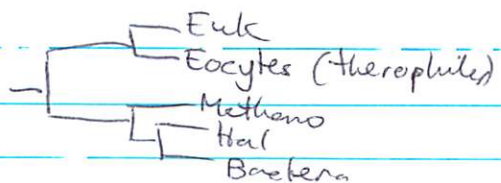 Euk
Eocytes (therophiles)
Methano
Hal
Bacteria